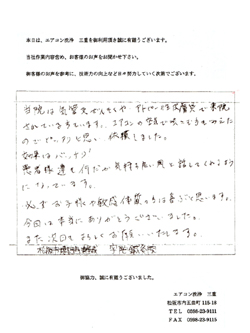 本日は、エアコン洗浄 三重を御利用頂き誠に有難うございます。
当社作業内容含め、お客様のお声をお聞かせ下さい。
御客様のお声を参考に、技術力の向上など日々努力していく次第でございます。
当院は気管支ぜんそくや アトピー 皮膚炎で来院
されている方もいます。エアコンの
のでピッタリと思い 依頼しました。
効果はバッチリ!
患者様達も何だか気持ち良い風と話してくれるように
なっています。
必ずお子様や敏感体質の方は喜ぶと思います。
今回は本当にありがとうございました。
また次回もよろしくお願いいたします。
御協力、誠に有難うございました。
エアコン洗浄 三重
松阪市内五曲町115-16
TEL 0598-23-9111
FAX 0598-23-9115